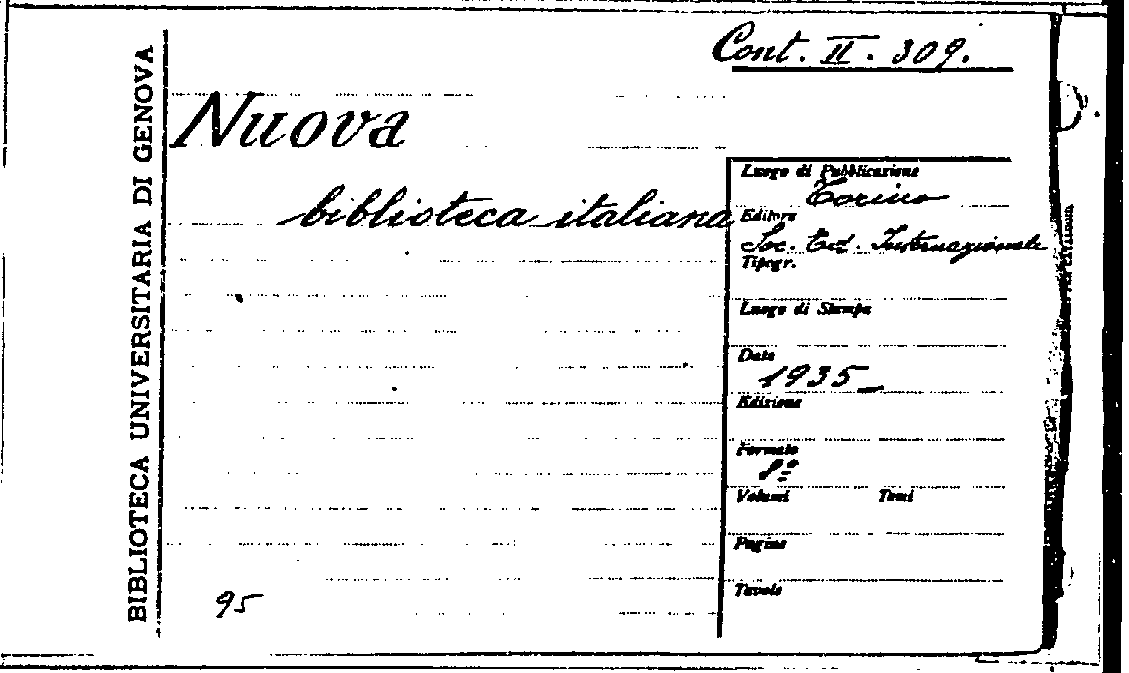 Cont. II. 309.
BIBLIOTECA UNIVERSITARIA DI GENOVA
Nuova
biblioteca italiana
Luogo di Pubblicazione
Torino
Editore
Soc. Ed. Internazionale
Tipogr.
Luogo di Stampa
Data
1935
Edizione
Formato
8º
Volumi Tomi
Pagine
Tavole
95